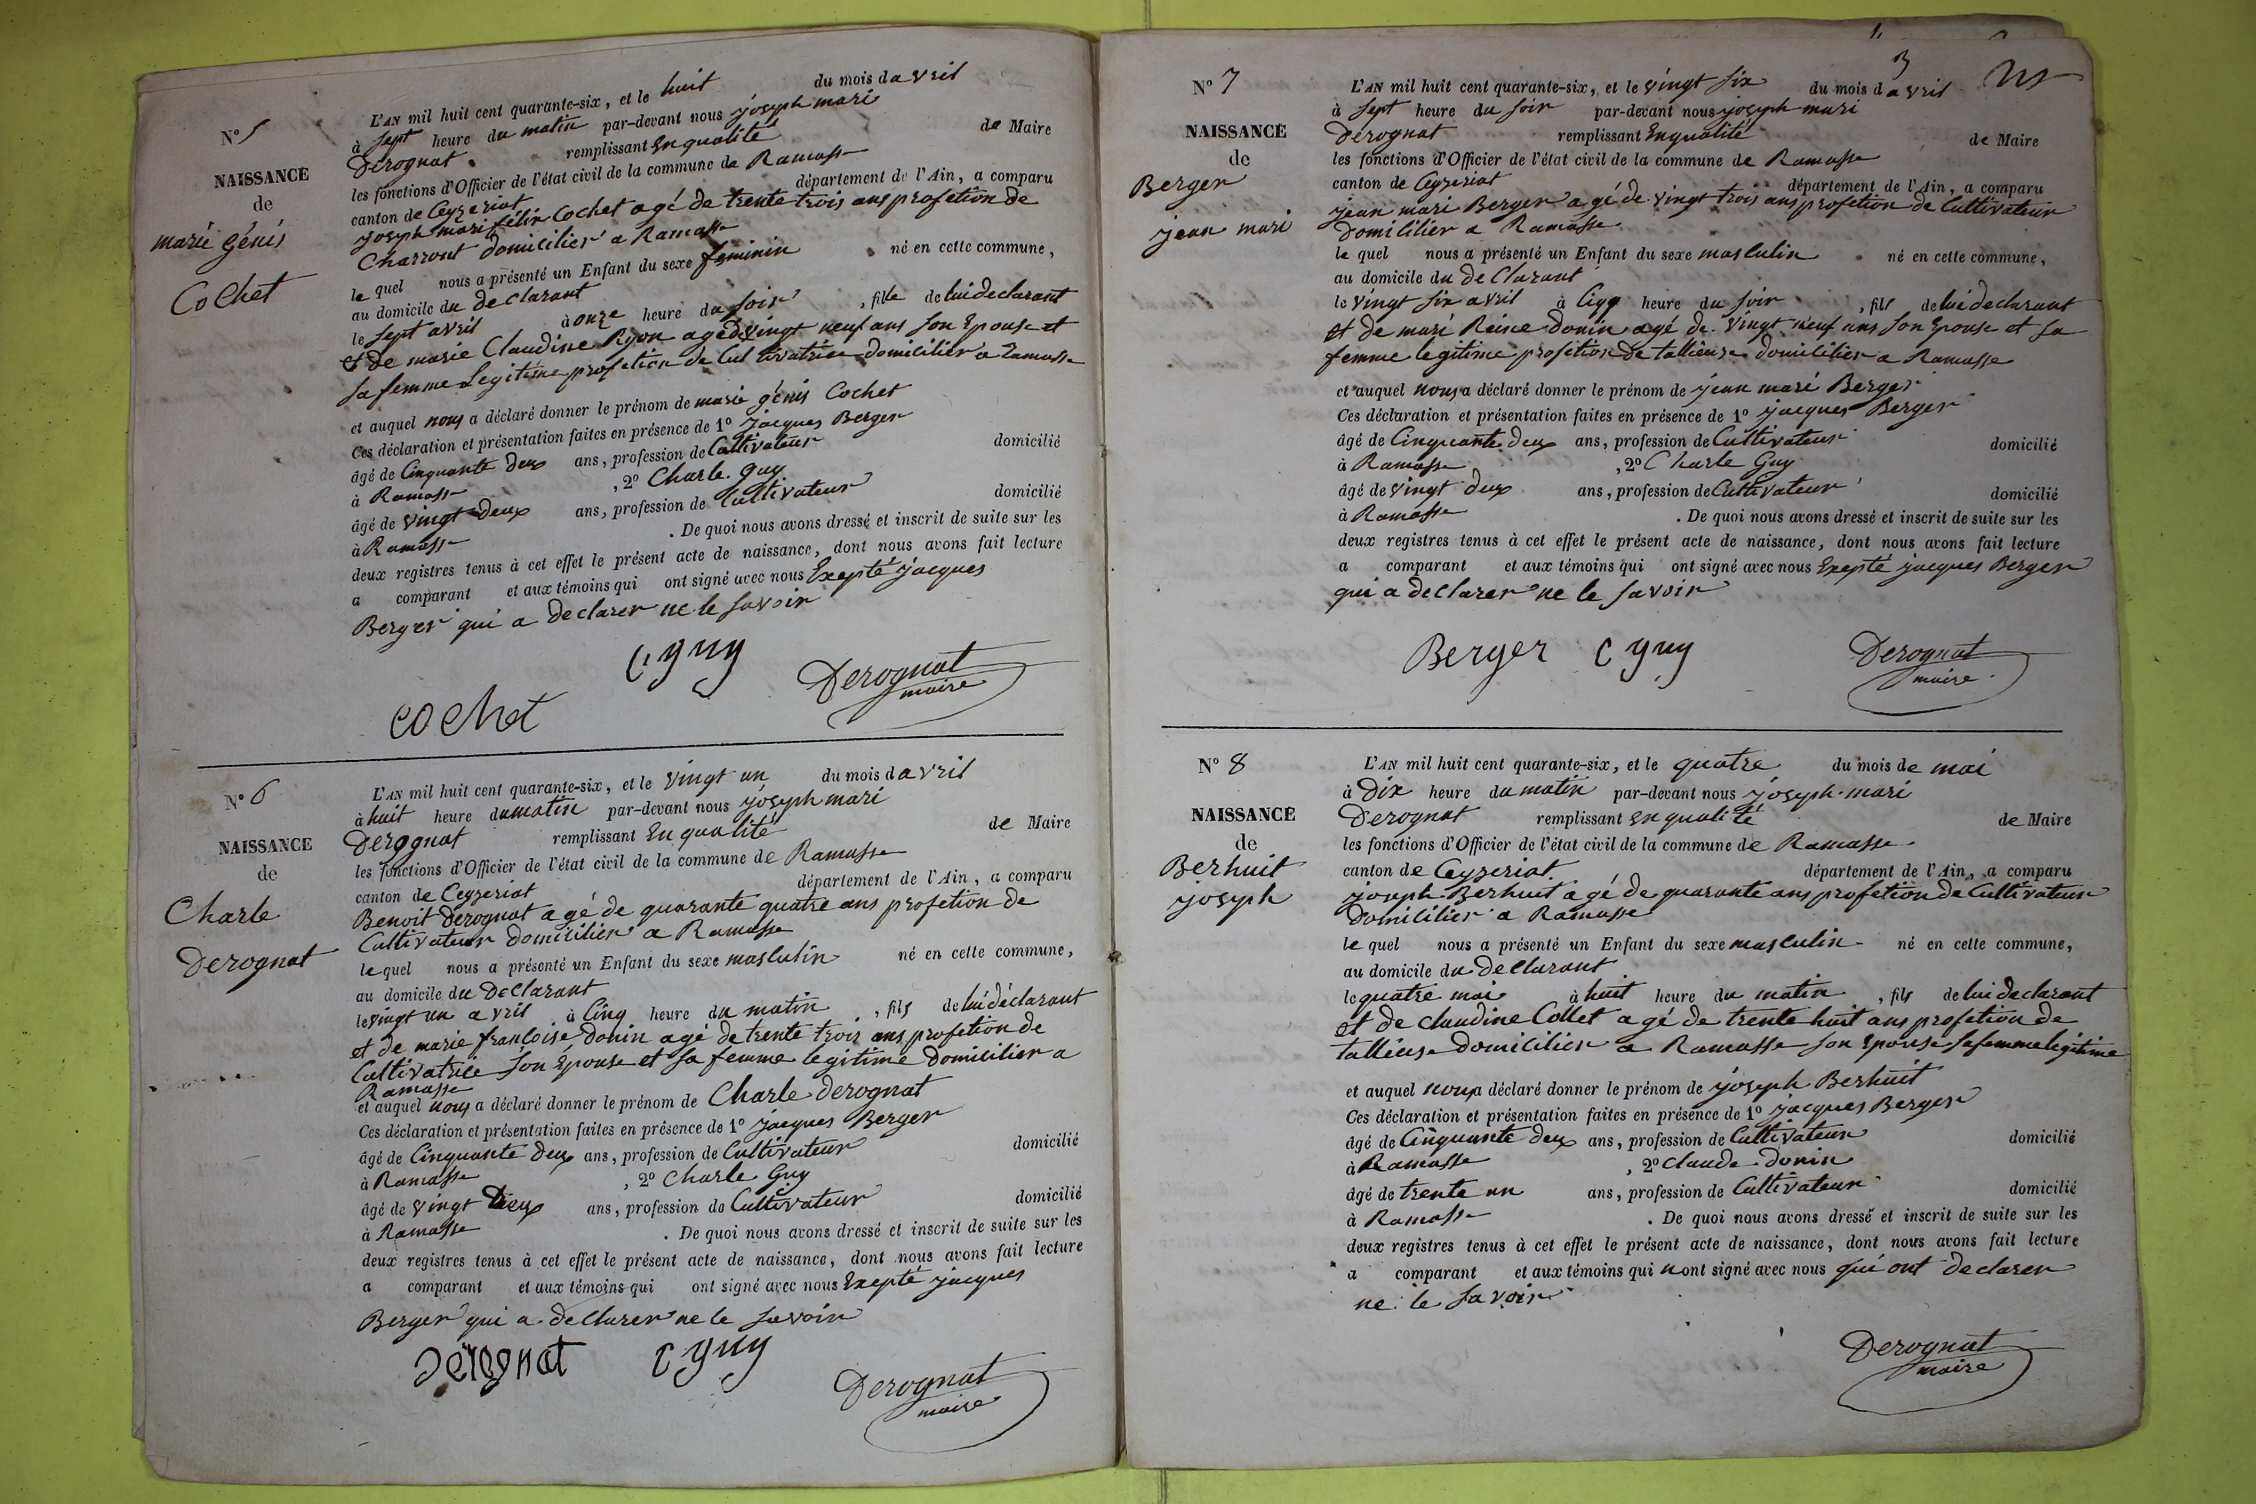 N° 5
NAISSANCE
de
marie génis
Cochet
L'AN mil huit cent quarante-six, et le huit du mois d avril
à sept heure du matin par-devant nous joseph mari
Derognat remplissant En qualité de Maire
les fonctions d'Officier de l'état civil de la commune de Ramasse
canton de Ceyzeriat département de l'Ain, a comparu
joseph mari félix Cochet agé de trente trois ans profetion de
Charront domicilier a Ramasse
le quel nous a présenté un Enfant du sexe feminin né en cette commune,
au domicile du declarant
le sept avril à onze heure du soir, fille de lui declarant
et de marie Claudine Ryon agé de vingt neuf ans son Epouse et
sa femme Legitime profetion de Cultivatrice domicilier a ramasse
et auquel nous a déclaré donner le prénom de marie génis Cochet
Ces déclaration et présentation faites en présence de 1° jacques Berger
âgé de Cinquante deux ans, profession de Cultivateur domicilié
à Ramasse, 2° Charle guy
âgé de vingt deux ans, profession de Cultivateur domicilié
à Ramasse. De quoi nous avons dressé et inscrit de suite sur les
deux registres tenus à cet effet le présent acte de naissance, dont nous avons fait lecture
a comparant et aux témoins qui ont signé avec nous Exepté jacques
Berger qui a declarer ne le savoir
C guy
Derognat
maire
cochet
N° 6
NAISSANCE
de
Charle
Derognat
L'AN mil huit cent quarante-six, et le vingt un du mois d avril
à huit heure du matin par-devant nous joseph mari
Derognat remplissant En qualité de Maire
les fonctions d'Officier de l'état civil de la commune de Ramasse
canton de Ceyzeriat département de l'Ain, a comparu
Benoit Derognat agé de quarante quatre ans profetion de
Cultivateur domicilier a Ramasse
le quel nous a présenté un Enfant du sexe masculin né en cette commune,
au domicile du Declarant
le vingt un avril à Cinq heure du matin, fils de lui déclarant
et de marie françoise Donin agé de trente trois ans profetion de
Cultivatrice son Epouse et sa femme legitime Domicilier a
Ramasse
et auquel nous a déclaré donner le prénom de Charle derognat
Ces déclaration et présentation faites en présence de 1° jacques Berger
âgé de Cinquante deux ans, profession de Cultivateur domicilié
à Ramasse, 2° Charle Guy
âgé de vingt Deux ans, profession de Cultivateur domicilié
à Ramasse. De quoi nous avons dressé et inscrit de suite sur les
deux registres tenus à cet effet le présent acte de naissance, dont nous avons fait lecture
a comparant et aux témoins qui ont signé avec nous Exepté jacques
Berger qui a declarer ne le savoir
Derognat C guy
Derognat
maire
3
N° 7
NAISSANCE
de
Berger
jean mari
L'AN mil huit cent quarante-six, et le vingt six du mois d avril
à sept heure du soir par-devant nous joseph mari
Derognat remplissant En qualité de Maire
les fonctions d'Officier de l'état civil de la commune de Ramasse
canton de Ceyzeriat département de l'Ain, a comparu
jean mari Berger agé de vingt trois ans profetion de Cultivateur
Domicilier a Ramasse
le quel nous a présenté un Enfant du sexe masculin né en cette commune,
au domicile du de Clarant
le vingt six avril à Cinq heure du soir, fils de lui declarant
et de mari Reine donin agé de vingt neuf ans son Epouse et sa
femme legitime profetion de tallieuse domicilier a Ramasse
et auquel nous a déclaré donner le prénom de jean mari Berger
Ces déclaration et présentation faites en présence de 1° jacques Berger
âgé de Cinquante deux ans, profession de Cultivateur domicilié
à Ramasse, 2° Charle Guy
âgé de vingt deux ans, profession de Cultivateur domicilié
à Ramasse. De quoi nous avons dressé et inscrit de suite sur les
deux registres tenus à cet effet le présent acte de naissance, dont nous avons fait lecture
a comparant et aux témoins qui ont signé avec nous Exepté jacques Berger
qui a declarer ne le savoir
Berger C guy
Derognat
maire
N° 8
NAISSANCE
de
Berhuit
joseph
L'AN mil huit cent quarante-six, et le quatre du mois de mai
à Dix heure du matin par-devant nous joseph mari
Derognat remplissant en qualité de Maire
les fonctions d'Officier de l'état civil de la commune de Ramasse
canton de Ceyzeriat département de l'Ain, a comparu
joseph Berhuit agé de quarante ans profetion de Cultivateur
Domicilier a Ramasse
le quel nous a présenté un Enfant du sexe masculin né en cette commune,
au domicile du declarant
le quatre mai à huit heure du matin, fils de lui declarant
et de claudine Collet agé de trente huit ans profetion de
tallieuse domicilier a Ramasse son Epouse sa femme legitime
et auquel nous a déclaré donner le prénom de joseph Berhuit
Ces déclaration et présentation faites en présence de 1° jacques Berger
âgé de Cinquante deux ans, profession de Cultivateur domicilié
à Ramasse, 2° claude donin
âgé de trente un ans, profession de Cultivateur domicilié
à Ramasse. De quoi nous avons dressé et inscrit de suite sur les
deux registres tenus à cet effet le présent acte de naissance, dont nous avons fait lecture
a comparant et aux témoins qui nont signé avec nous qui ont declarer
ne le savoir
Derognat
maire